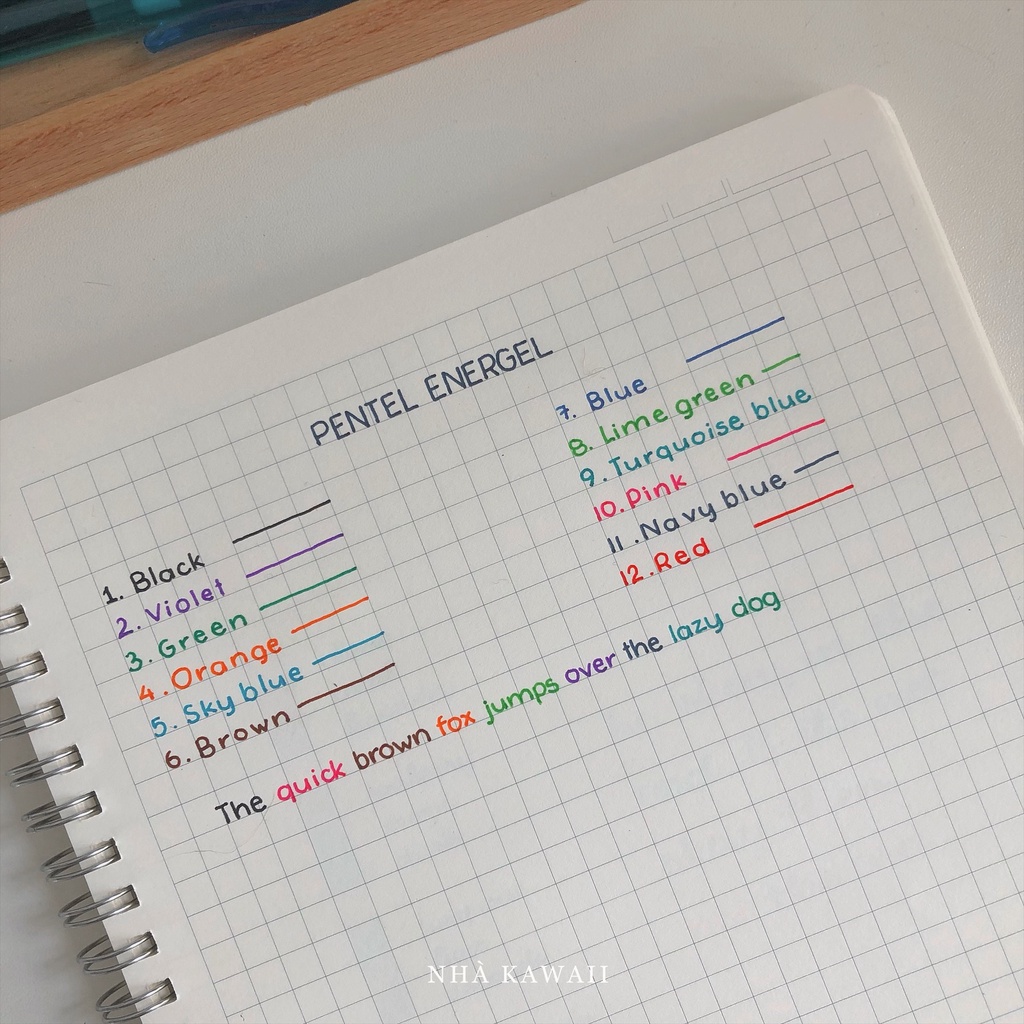 PENTEL ENERGEL
1. Black
2. Violet
3. Green
4. Orange
5. Sky blue
6. Brown
7. Blue
8. Lime green
9. Turquoise blue
10. Pink
11. Navy blue
12. Red
The quick brown fox jumps over the lazy dog
NHÀ KAWAII